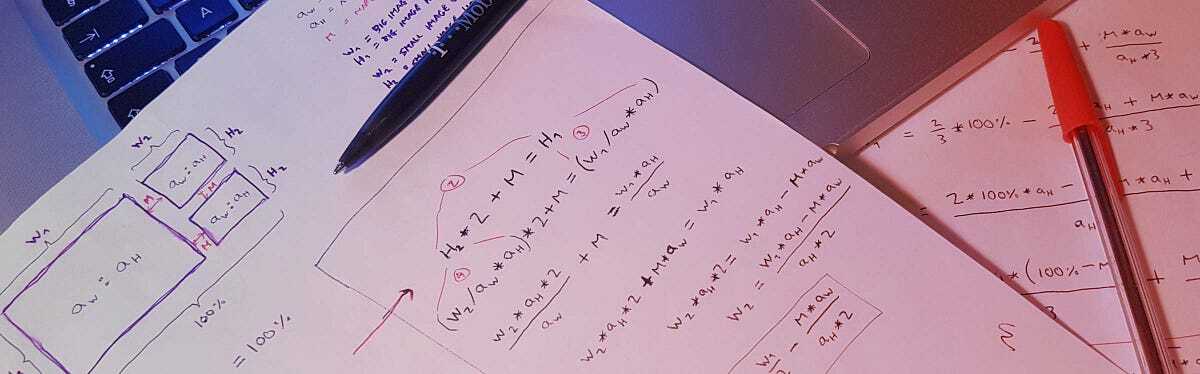 W₁ = BIG IMAGE
H₁ = BIG IMAGE
W₂ = SMALL IMAGE
H₂ =
W₂
H₂
aw:aH
H₂
M
aw:aH
M
M
W₁
aw : aH
100%
= 100%
② ③
H₂*2 + M = H₁
④
(W₂/aw*aH)*2+M = (W₁/aw*aH)
W₂*aH*2/aw + M = W₁*aH/aw
W₂*aH*2 + M*aw = W₁*aH
W₂*aH*2 = W₁*aH - M*aw
W₂ = W₁*aH - M*aw/aH*2
W₁/2 - M*aw/aH*2
+ M*aw/aH*3
= 2/3*100% - aH + M*aw/aH*3
= 2*100%*aH - M*aH +/aH
*(100%-M
3